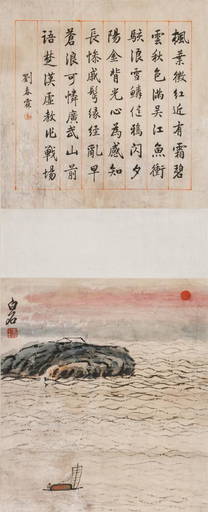 楓葉微紅近有霜碧
雲秋色滿吳江魚衝
駭浪雪鱗健鴉閃夕
陽金背光心為感知
長慘戚鬢緣經亂早
蒼浪可憐廣武山前
語楚漢虛教作戰場
劉春霖
白石